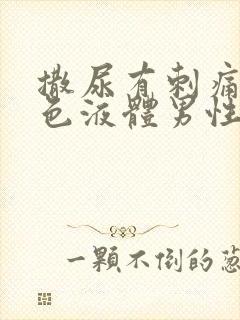 撒尿有刺痛
色液體男性
一顆不倒的蔥